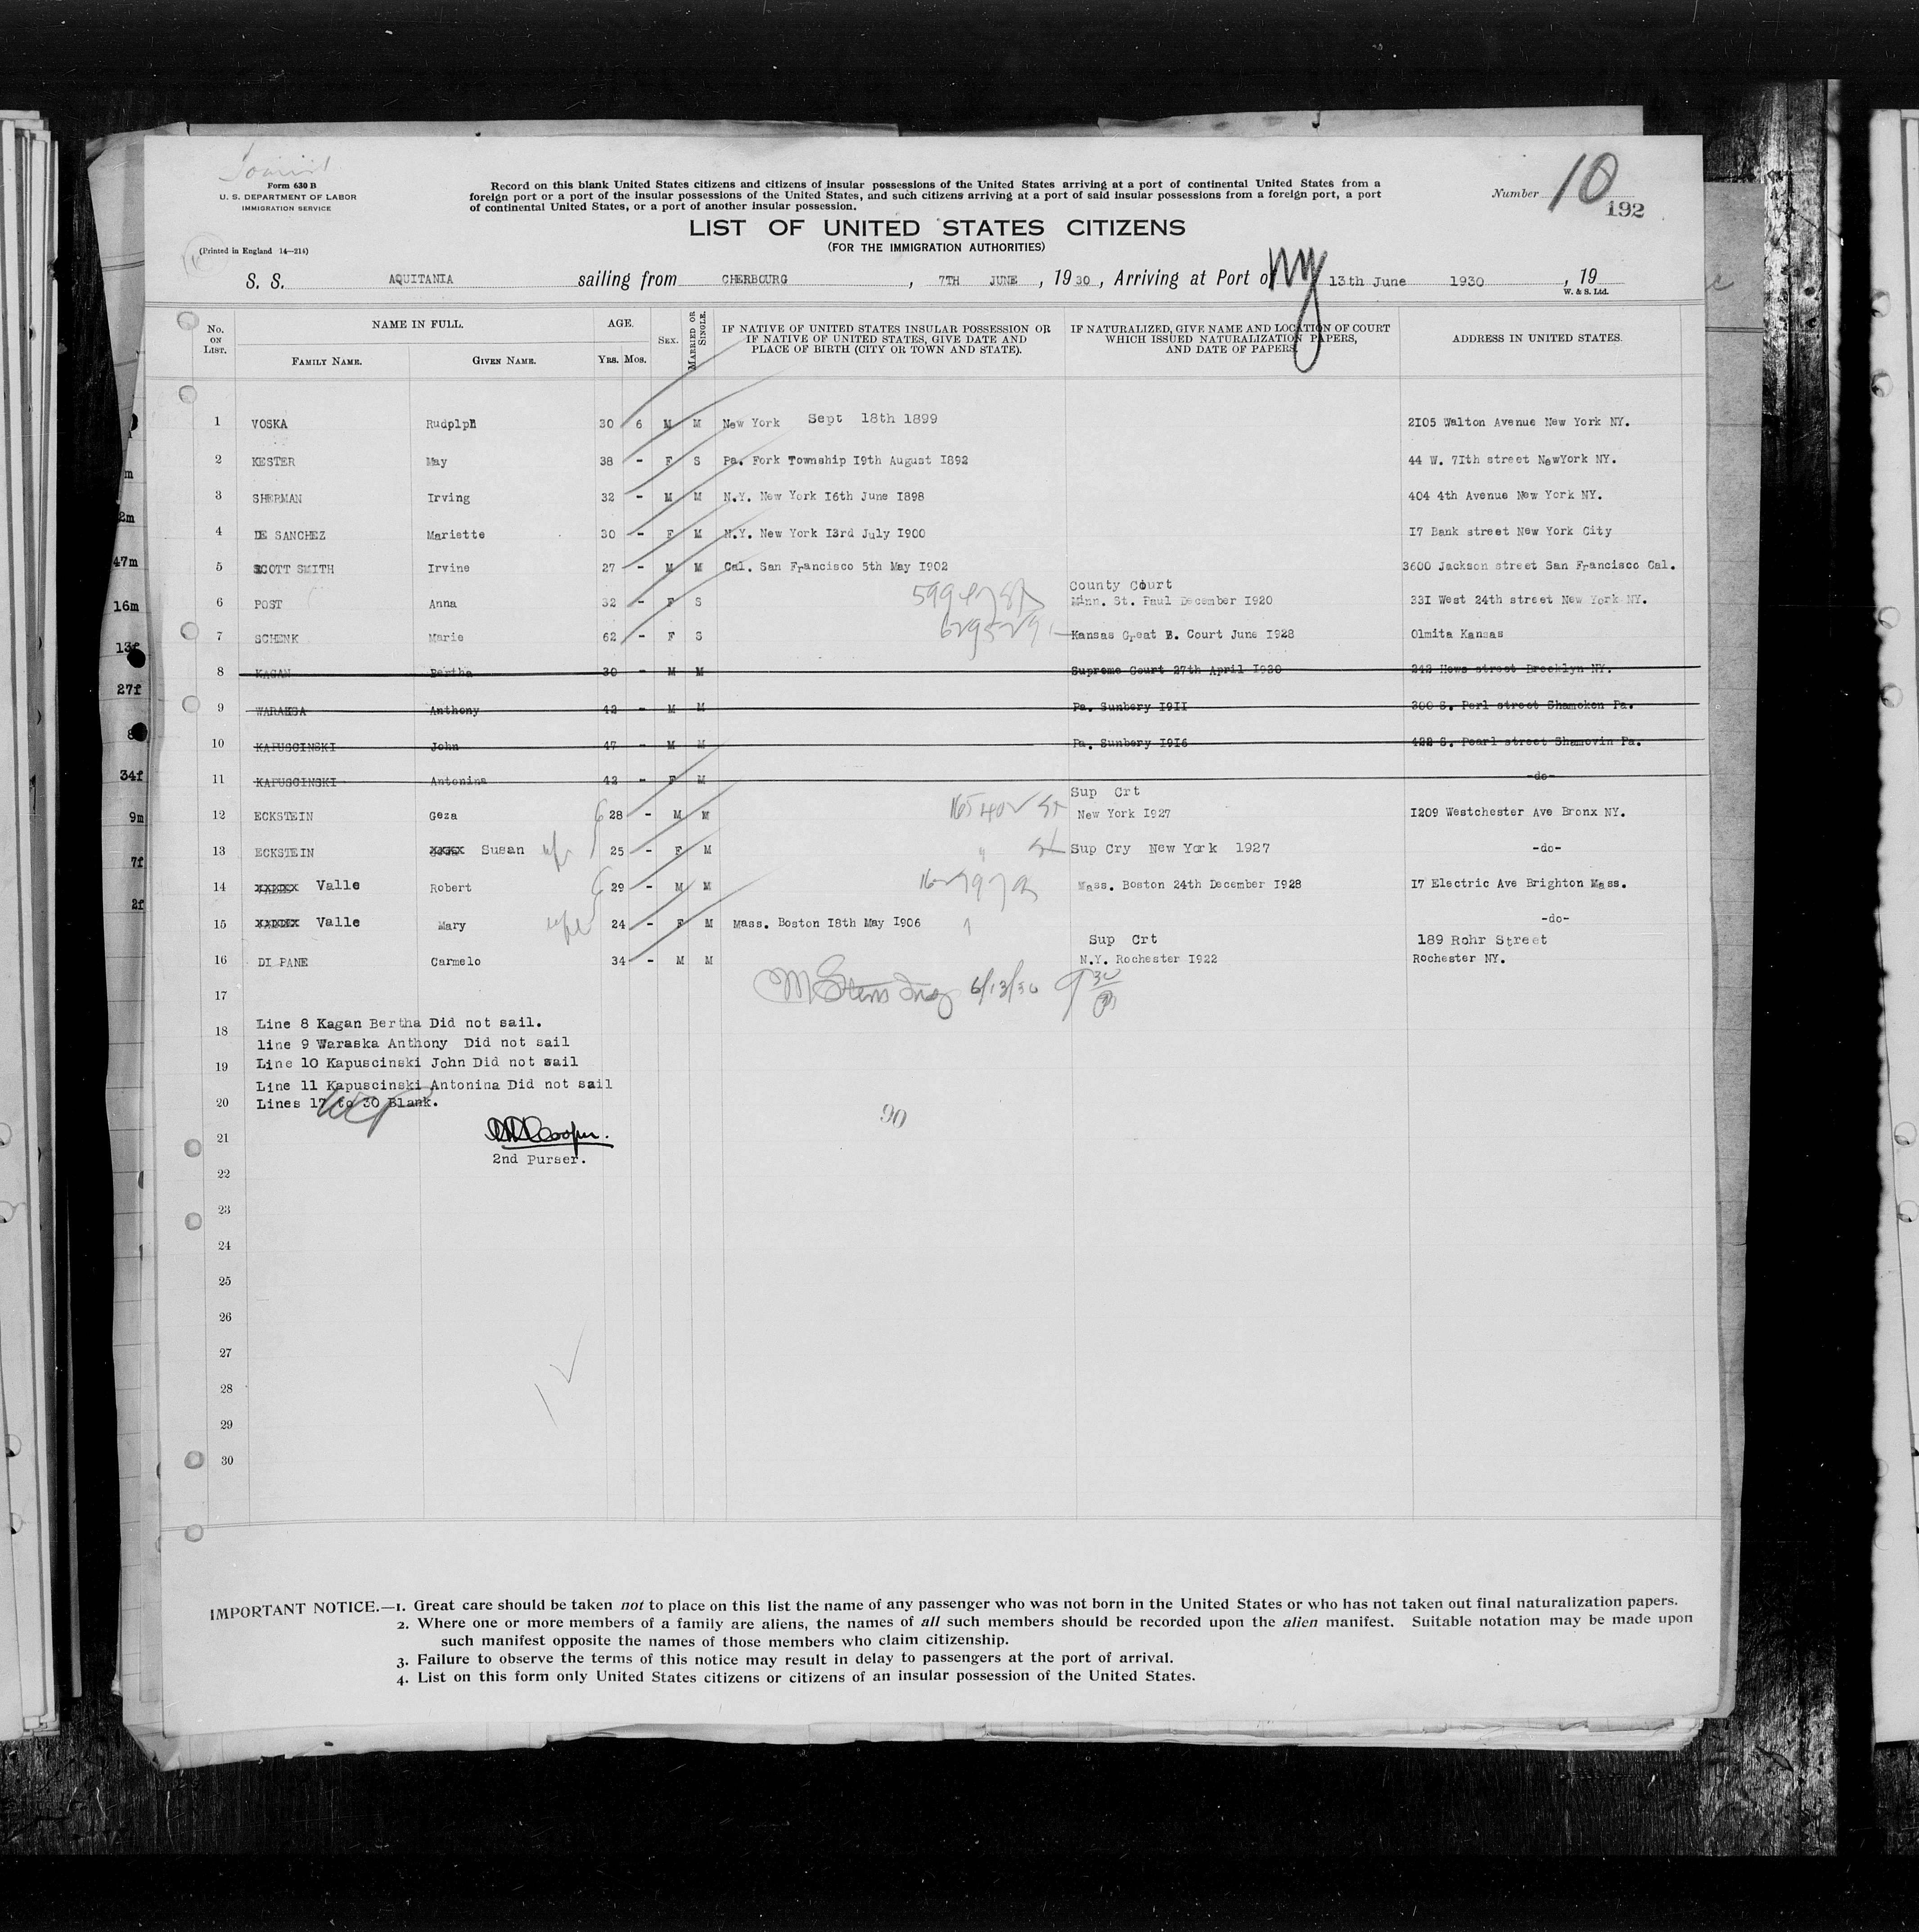 Tourist
Form 630 B
U. S. DEPARTMENT OF LABOR
IMMIGRATION SERVICE
(Printed in England 14—214)
Record on this blank United States citizens and citizens of insular possessions of the United States arriving at a port of continental United States from a
foreign port or a port of the insular possessions of the United States, and such citizens arriving at a port of said insular possessions from a foreign port, a port
of continental United States, or a port of another insular possession.
Number 10
192
LIST OF UNITED STATES CITIZENS
(FOR THE IMMIGRATION AUTHORITIES)
S. S. AQUITANIA sailing from CHERBOURG, 7TH JUNE, 1930, Arriving at Port of NY 13th June 1930, 19
W. & S. Ltd.
No. ON LIST. NAME IN FULL. FAMILY NAME. GIVEN NAME. AGE. YRS. MOS. SEX. MARRIED OR SINGLE. IF NATIVE OF UNITED STATES INSULAR POSSESSION OR IF NATIVE OF UNITED STATES, GIVE DATE AND PLACE OF BIRTH (CITY OR TOWN AND STATE). IF NATURALIZED, GIVE NAME AND LOCATION OF COURT WHICH ISSUED NATURALIZATION PAPERS, AND DATE OF PAPERS. ADDRESS IN UNITED STATES.
1 VOSKA Rudolph 30 6 M M New York Sept 18th 1899 2I05 Walton Avenue New York NY.
2 KESTER May 38 - F S Pa. Fork Township I9th August I892 44 W. 7Ith street NewYork NY.
3 SHERMAN Irving 32 - M M N.Y. New York I6th June I898 404 4th Avenue New York NY.
4 DE SANCHEZ Mariette 30 - F M N.Y. New York I3rd July I900 I7 Bank street New York City
5 SCOTT SMITH Irvine 27 - M M Cal. San Francisco 5th May I902 3600 Jackson street San Francisco Cal.
County Court
6 POST Anna 32 - F S Minn. St. Paul December I920 33I West 24th street New York NY.
7 SCHENK Marie 62 - F S Kansas Great B. Court June I928 Olmita Kansas
8 KAGAN Bertha 30 - M M Supreme Court 27th April I930 242 Hows street Brooklyn NY.
9 WARAKSA Anthony 42 - M M Pa. Sunbery I9II 300 S. Perl street Shamoken Pa.
10 KAPUSCINSKI John 47 - M M Pa. Sunbery I9I6 422 S. Pearl street Shamovin Pa.
11 KAPUSCINSKI Antonina 42 - F M -do-
Sup Crt
12 ECKSTEIN Geza 28 - M M New York I927 I209 Westchester Ave Bronx NY.
13 ECKSTEIN Susan 25 - F M Sup Cry New York 1927 -do-
14 Valle Robert 29 - M M Mass. Boston 24th December I928 I7 Electric Ave Brighton Mass.
15 Valle Mary 24 - F M Mass. Boston I8th May I906 -do-
Sup Crt 189 Rohr Street
16 DI PANE Carmelo 34 - M M N.Y. Rochester I922 Rochester NY.
6/13/30
17
18 Line 8 Kagan Bertha Did not sail.
line 9 Waraska Anthony Did not sail
19 Line 10 Kapuscinski John Did not sail
Line 11 Kapuscinski Antonina Did not sail
20 Lines 17 to 30 Blank.
90
21 Cooper.
2nd Purser.
22
23
24
25
26
27
28
29
30
IMPORTANT NOTICE.—1. Great care should be taken not to place on this list the name of any passenger who was not born in the United States or who has not taken out final naturalization papers.
2. Where one or more members of a family are aliens, the names of all such members should be recorded upon the alien manifest. Suitable notation may be made upon
such manifest opposite the names of those members who claim citizenship.
3. Failure to observe the terms of this notice may result in delay to passengers at the port of arrival.
4. List on this form only United States citizens or citizens of an insular possession of the United States.
2m
47m
16m
13f
27f
34f
9m
7f
2f